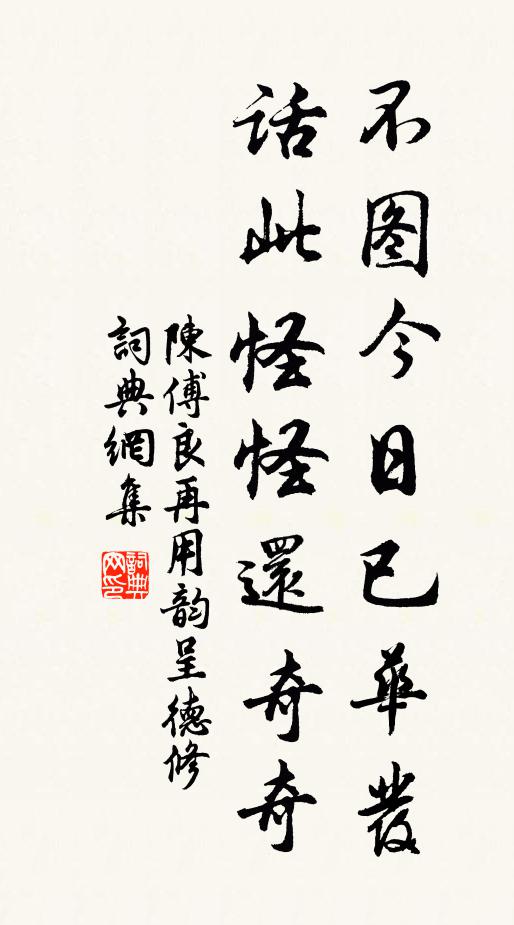 不图今日已華發
話此怪怪還奇奇
陳傅良再用韵呈德修
詞典網集
詞典网印